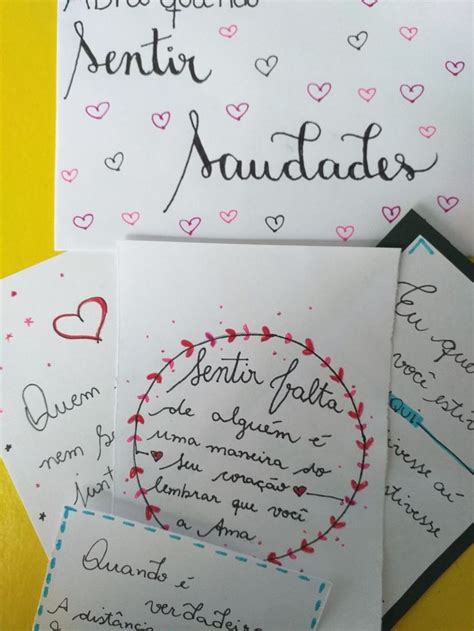 Abra quando
Sentir
Saudades
Quem
nem
junt
Sentir falta
de alguém é
uma maneira do
seu coração
lembrar que você
a Ama.
Eu que
você esti
aqui
ivesse aí
estivesse
Quando é
verdadeiro
A distância